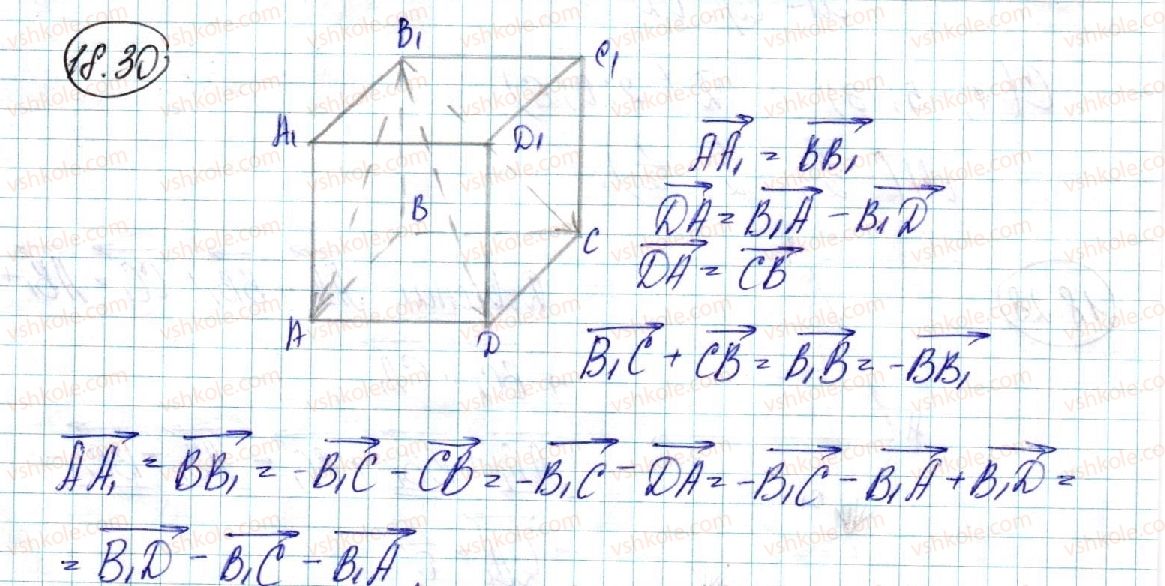 18.30
B₁ C₁
A₁ D₁
B C
A D
AA₁ = BB₁
DA = B₁A − B₁D
DA = CB
B₁C + CB = B₁B = −BB₁
AA₁ = BB₁ = −B₁C − CB = −B₁C − DA = −B₁C − B₁A + B₁D =
= B₁D − B₁C − B₁A.
vshkole.com